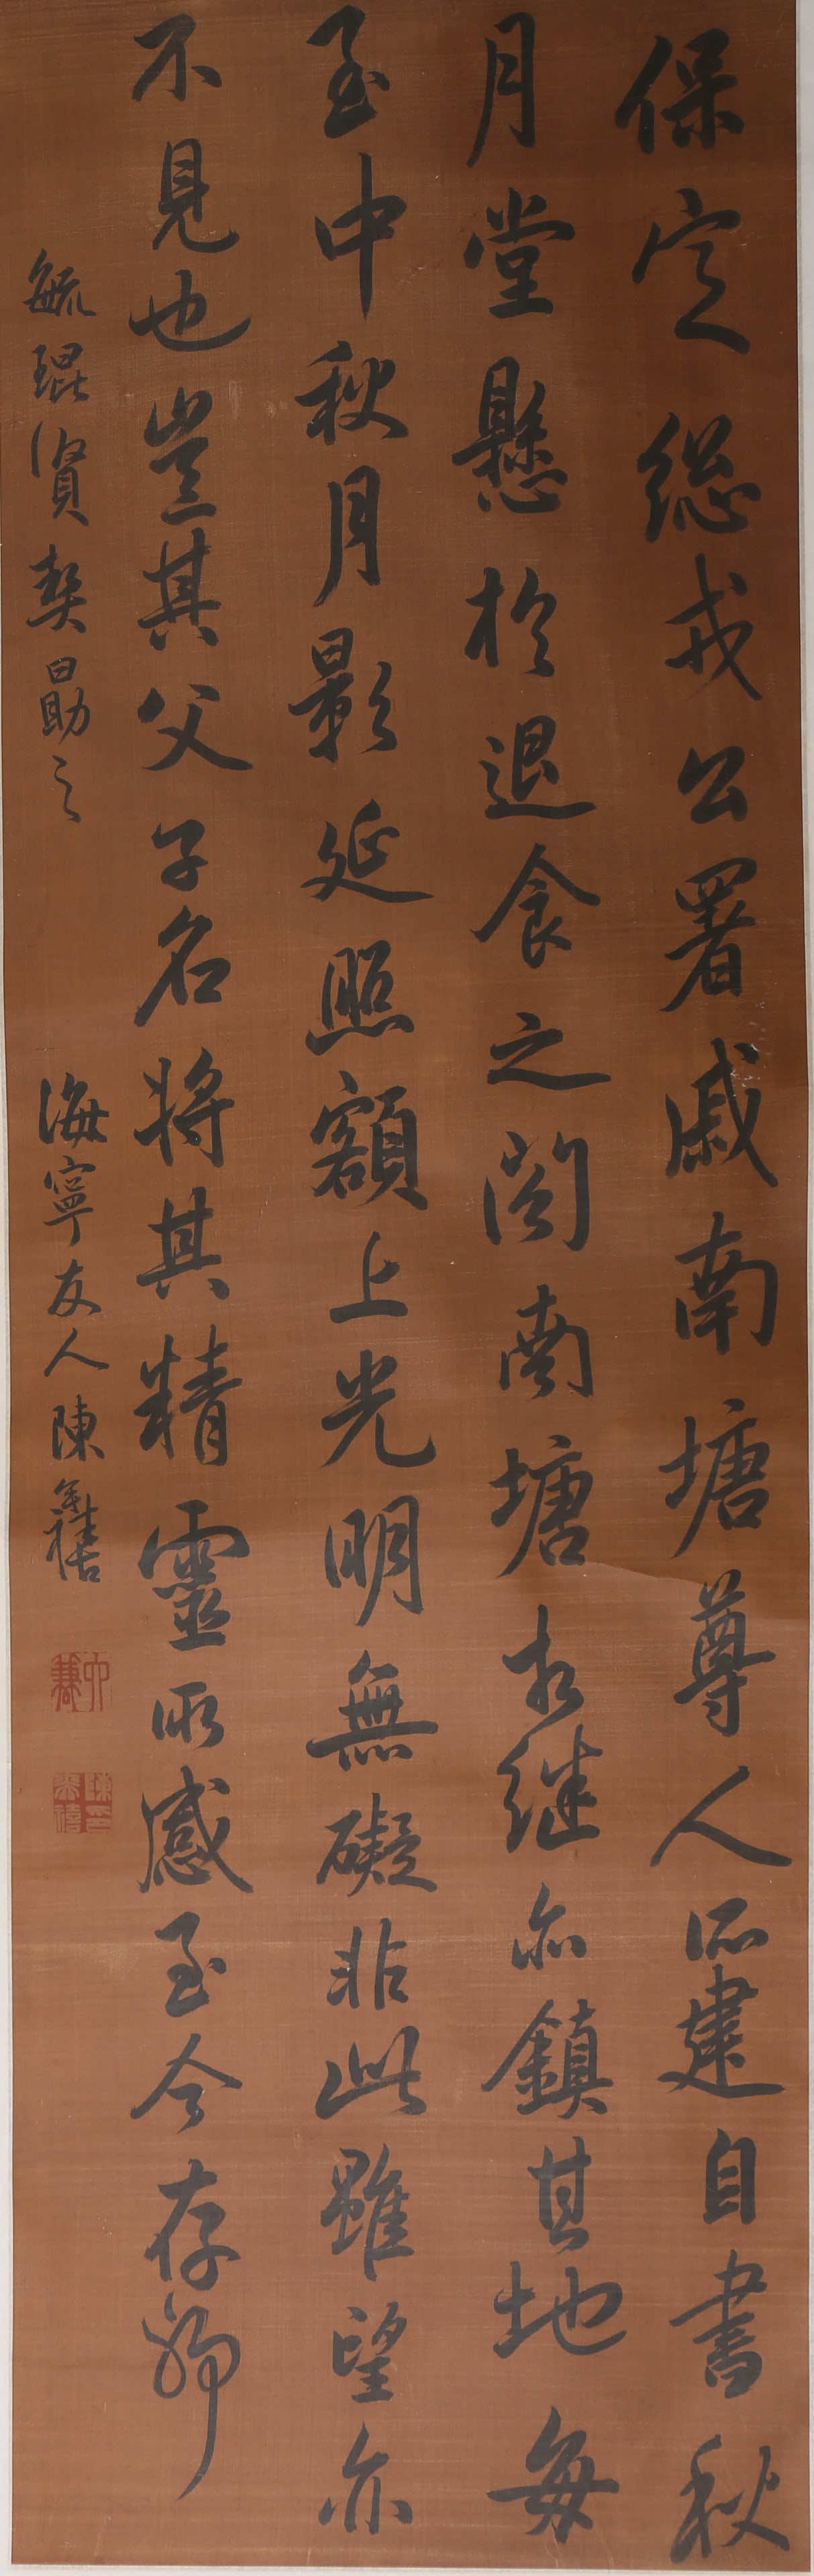 保定総戎公署戚南塘尊人所建自書秋
月堂懸於退食之閣南塘相継亦鎮其地每
至中秋月影延照額上光明無礙非此雖望亦
不見也豈其父子名將其精靈所感至今存耶
毓琨賢契勗之
海寧友人陳奕禧
六謙
陳奕禧印